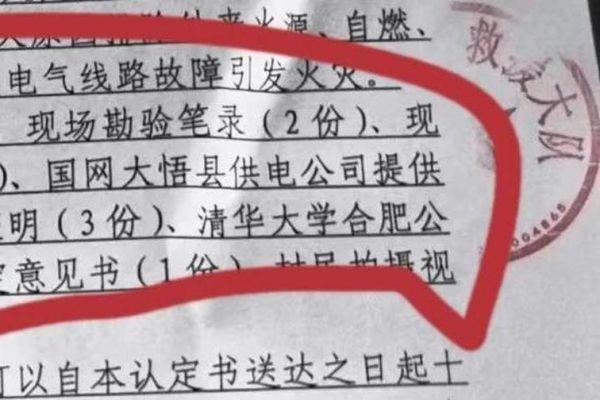 火源、自燃、
电气线路故障引发火灾。
现场勘验笔录(2份)、现
)、国网大悟县供电公司提供
明(3份)、清华大学合肥公
意见书(1份)、村民拍摄视
可以自本认定书送达之日起十
救援大队